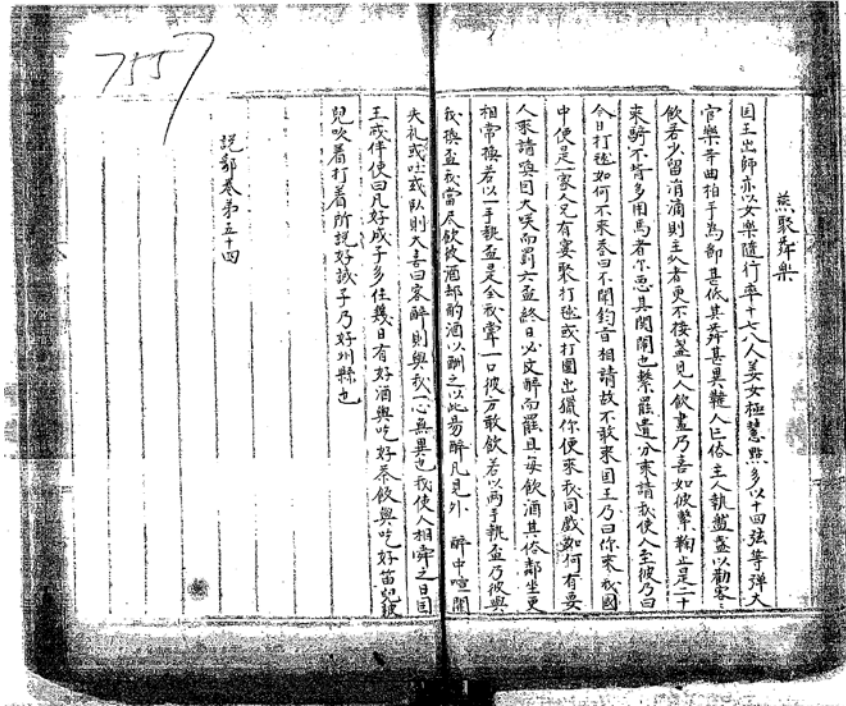 燕聚舞樂
国王出師亦以女樂隨行率十七八人美女極慧黠多以十四弦等弹大
官樂等曲拍手為節甚低其舞甚異韃人之俗主人執盤盞以勸客〻
飲若少留涓滴則主人者更不接盞見人飲盡乃喜如彼擊鞠止是二十
來騎不肯多用馬者亦惡其閧閙也擊罷遣介來請我使人至彼乃曰
今日打毬如何不來荅曰不聞鈞旨相請故不敢來国王乃曰你來我國
中便是一家人凡有宴聚打毬或打圍出獵你便來我同戲如何有要
人來請喚因大咲而罰六盃終日必大醉而罷且每飲酒其俗鄰坐更
相甞換若以一手執盃是全我甞一口彼方敢飲若以两手執盃乃彼與
我換盃我當尽飲彼酒却酌酒以酬之以此易醉凡見外 醉中喧閙
失礼或吐或臥則大喜曰客醉則與我一心無異也我使人相辞之日国
王戒伴使曰凡好成子多住幾日有好酒與吃好茶飯與吃好笛兒鼓
兒吹着打着所說好誠子乃好州縣也
說郛卷第五十四
7557